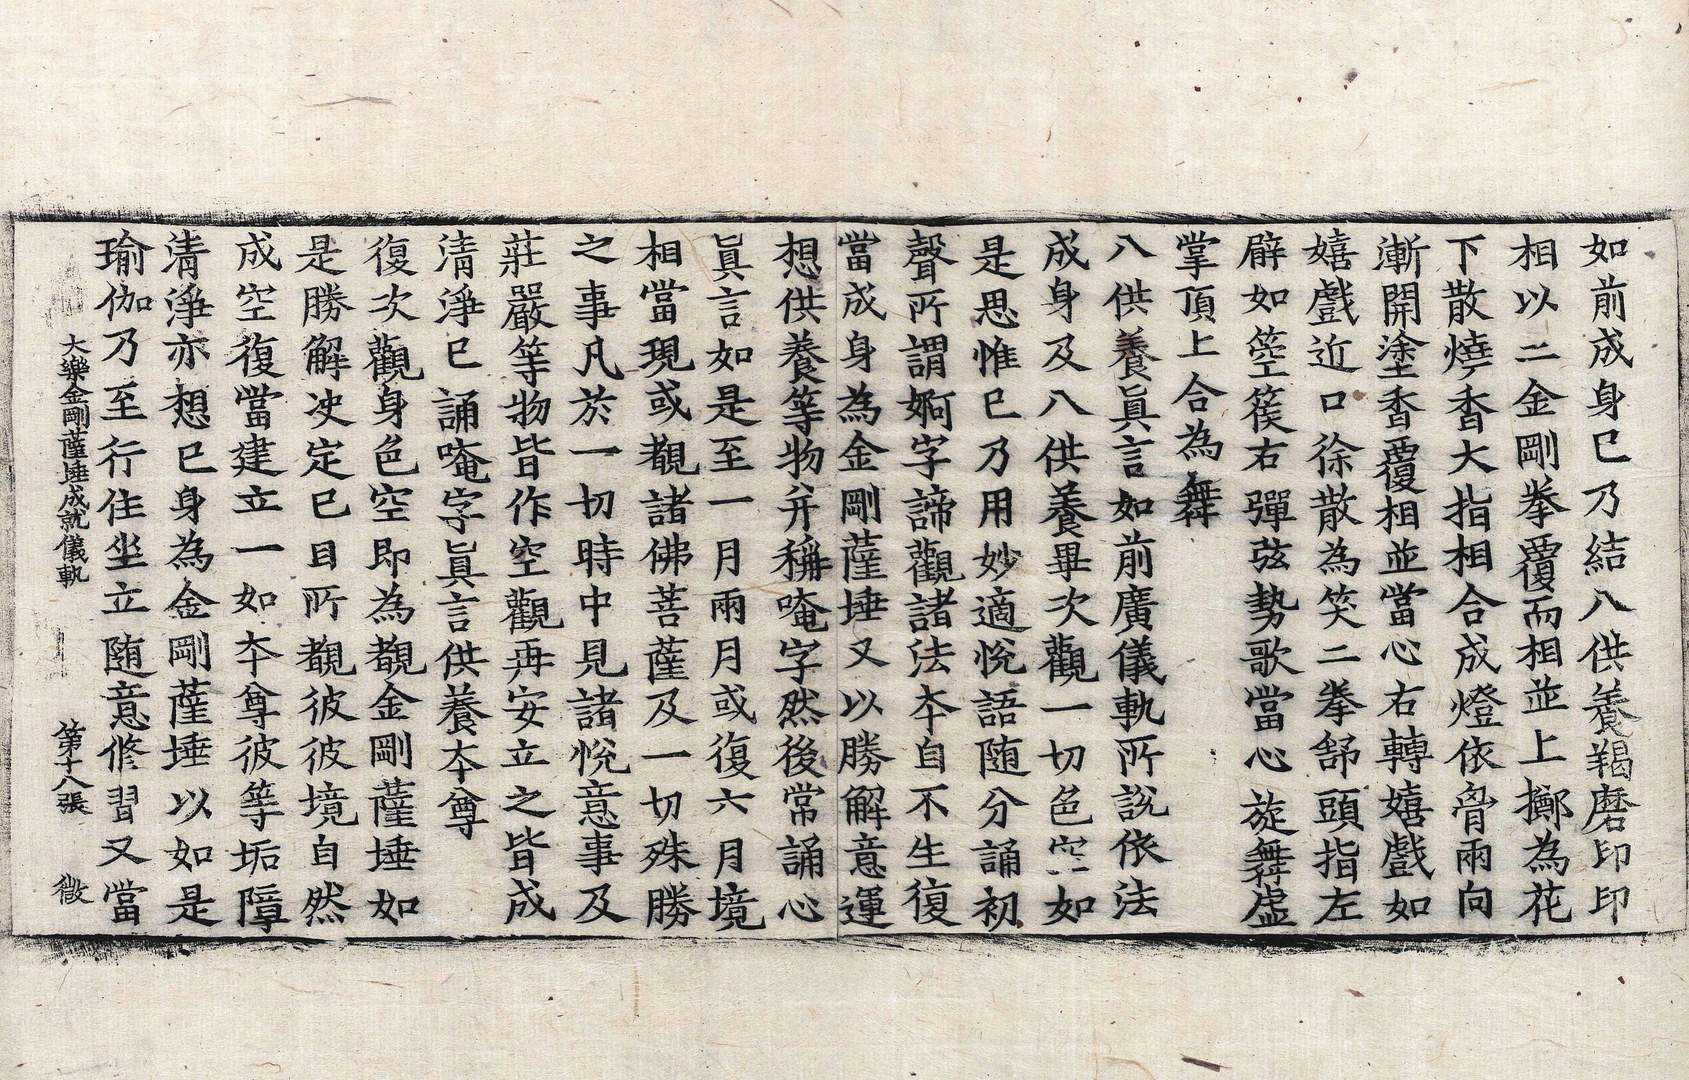 如前成身已乃結八供養羯磨印印
相以二金剛拳覆而相並上擲為花
下散燒香大指相合成燈依骨兩向
漸開塗香覆相並當心右轉嬉戲如
嬉戲近口徐散為笑二拳舒頭指左
臂如箜篌右彈弦勢歌當心旋舞虛
掌頂上合為舞
八供養眞言如前廣儀軌所說依法
成身及八供養畢次觀一切色空如
是思惟已乃用妙適悅語随分誦初
聲所謂婀字諦觀諸法夲自不生復
當成身為金剛薩埵又以勝解意運
想供養等物并稱唵字然後常誦心
眞言如是至一月兩月或復六月境
相當現或覩諸佛菩薩及一切殊勝
之事凡於一切時中見諸悅意事及
莊嚴等物皆作空觀再安立之皆成
清淨已 誦唵字眞言供養夲尊
復次觀身色空即為覩金剛薩埵如
是勝解决定已目所覩彼彼境自然
成空復當建立一如夲尊彼等垢障
清淨亦想已身為金剛薩埵以如是
瑜伽乃至行住坐立随意修習又當
大樂金剛薩埵成就儀軌 第十八張 徵